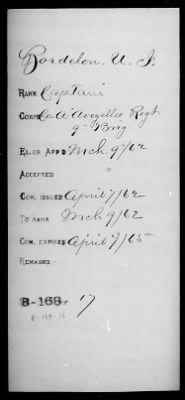 Bordelon, U. J.
RANK Captain
CORPS Co A Avoyelles Regt.
9" Brig
EL. OR APP'D Mch. 9"/62
ACCEPTED "
COM. ISSUED April 7/62
TO RANK Mch 9/62
COM. EXPIRES April 9/65
REMARKS
B-168. 17